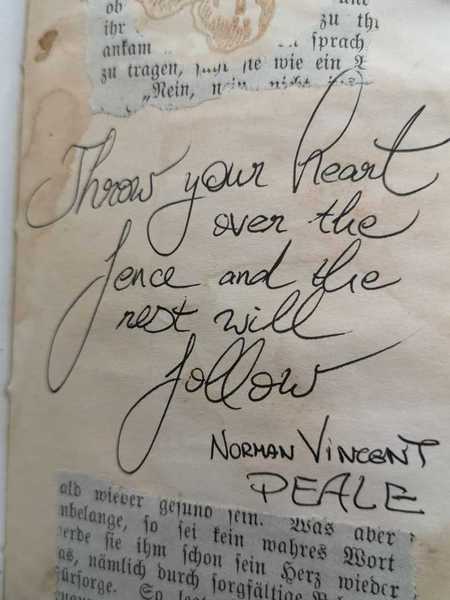 ob
ihr zu
ankam sprach
zu tragen, sie wie ein
„Nein,
Throw your heart
over the
fence and the
rest will
follow
NORMAN VINCENT
PEALE
ald wieder gesund sein. Was aber
nbelange, so sei kein wahres Wort
erde sie ihm schon sein Herz wieder
as, nämlich durch sorgfältige
fürsorge. So